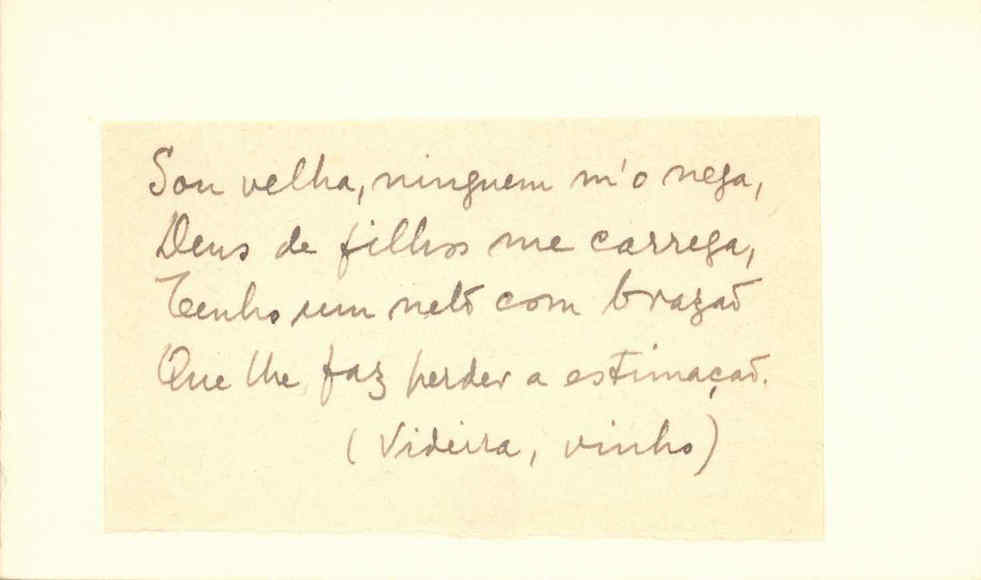 Sou velha, ninguem m'o nega,
Deus de filhos me carrega,
Tenho um neto com brazaõ
Que lhe faz perder a estimaçaõ.
(Videira, vinho)